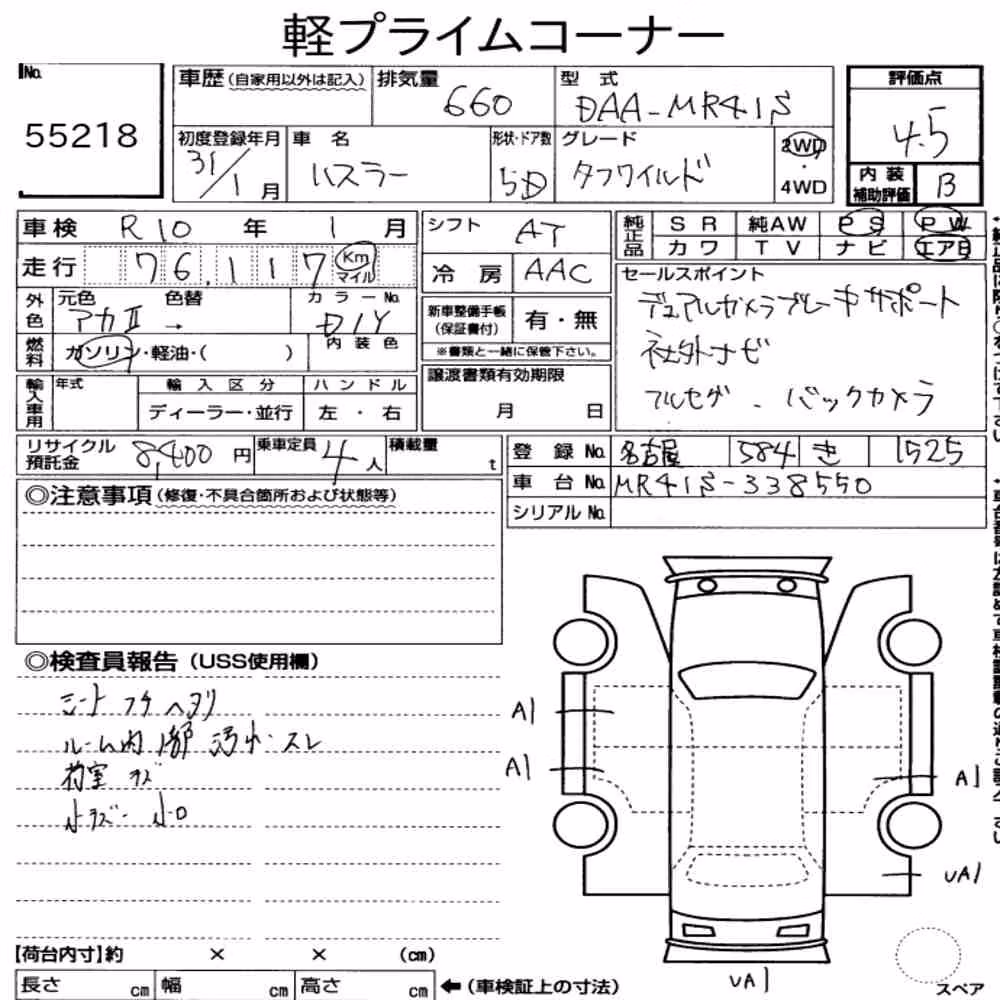 軽プライムコーナー
No.
55218
車歴(自家用以外は記入)
排気量
660
型 式
DAA-MR41S
評価点
4.5
初度登録年月
31/1月
車 名
ハスラー
形状・ドア数
5D
グレード
タフワイルド
2WD
・
4WD
内 装
補助評価
B
車検 R10 年 1 月
走行 76,117 Km
マイル
シフト
AT
純正品
S R 純AW P S P W
カ ワ T V ナ ビ エアB
冷 房 AAC
セールスポイント
デュアルカメラブレーキサポート
社外ナビ
フルセグ . バックカメラ
外色
元色 色替
アカⅡ →
カラーNo.
D1Y
新車整備手帳
(保証書付)
有・無
※書類と一緒に保管下さい。
燃料
ガソリン・軽油・( )
内 装 色
輸入車用
年式
輸 入 区 分
ハ ン ド ル
ディーラー・並行
左 ・ 右
譲渡書類有効期限
月 日
リサイクル
預託金
8,400 円
乗車定員 4人
積載量
t
登 録 No. 名古屋 584 き 1525
車 台 No. MR41S-338550
シリアル No.
◎注意事項(修復・不具合箇所および状態等)
◎検査員報告(USS使用欄)
シート フチ ヘタリ
ルーム内 1部 汚れ・スレ
荷室 キズ
小キズ・ 小凹
A1
A1
A1
UA1
UA1
スペア
【荷台内寸】約 × × (cm)
長さ cm 幅 cm 高さ cm ←(車検証上の寸法)